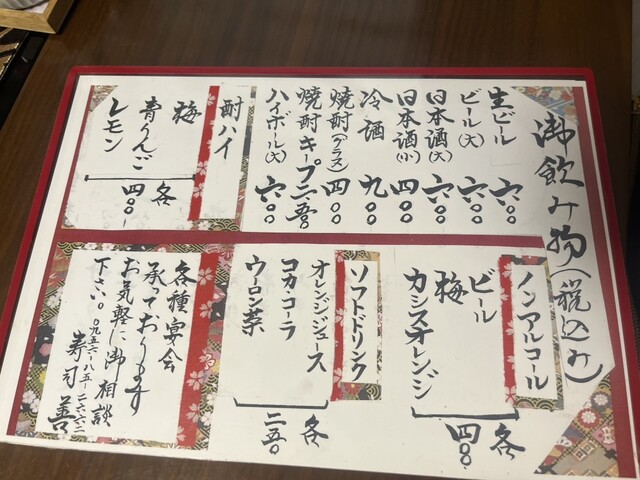 御飲み物(税込み)
生ビール 六〇〇
ビール(大) 六〇〇
日本酒(大) 六〇〇
日本酒(小) 四〇〇
冷酒 九〇〇
焼酎(グラス) 四〇〇
焼酎キープ 二、五〇〇
ハイボール(大) 六〇〇
酎ハイ
梅
青りんご
レモン
各四〇〇
ノンアルコール
ビール
梅
カシスオレンジ
各四〇〇
ソフトドリンク
オレンジジュース
コカ・コーラ
ウーロン茶
各二五〇
各種宴会
承ております
お気軽に御相談
下さい。〇九五六-八五-二六六二
寿司善